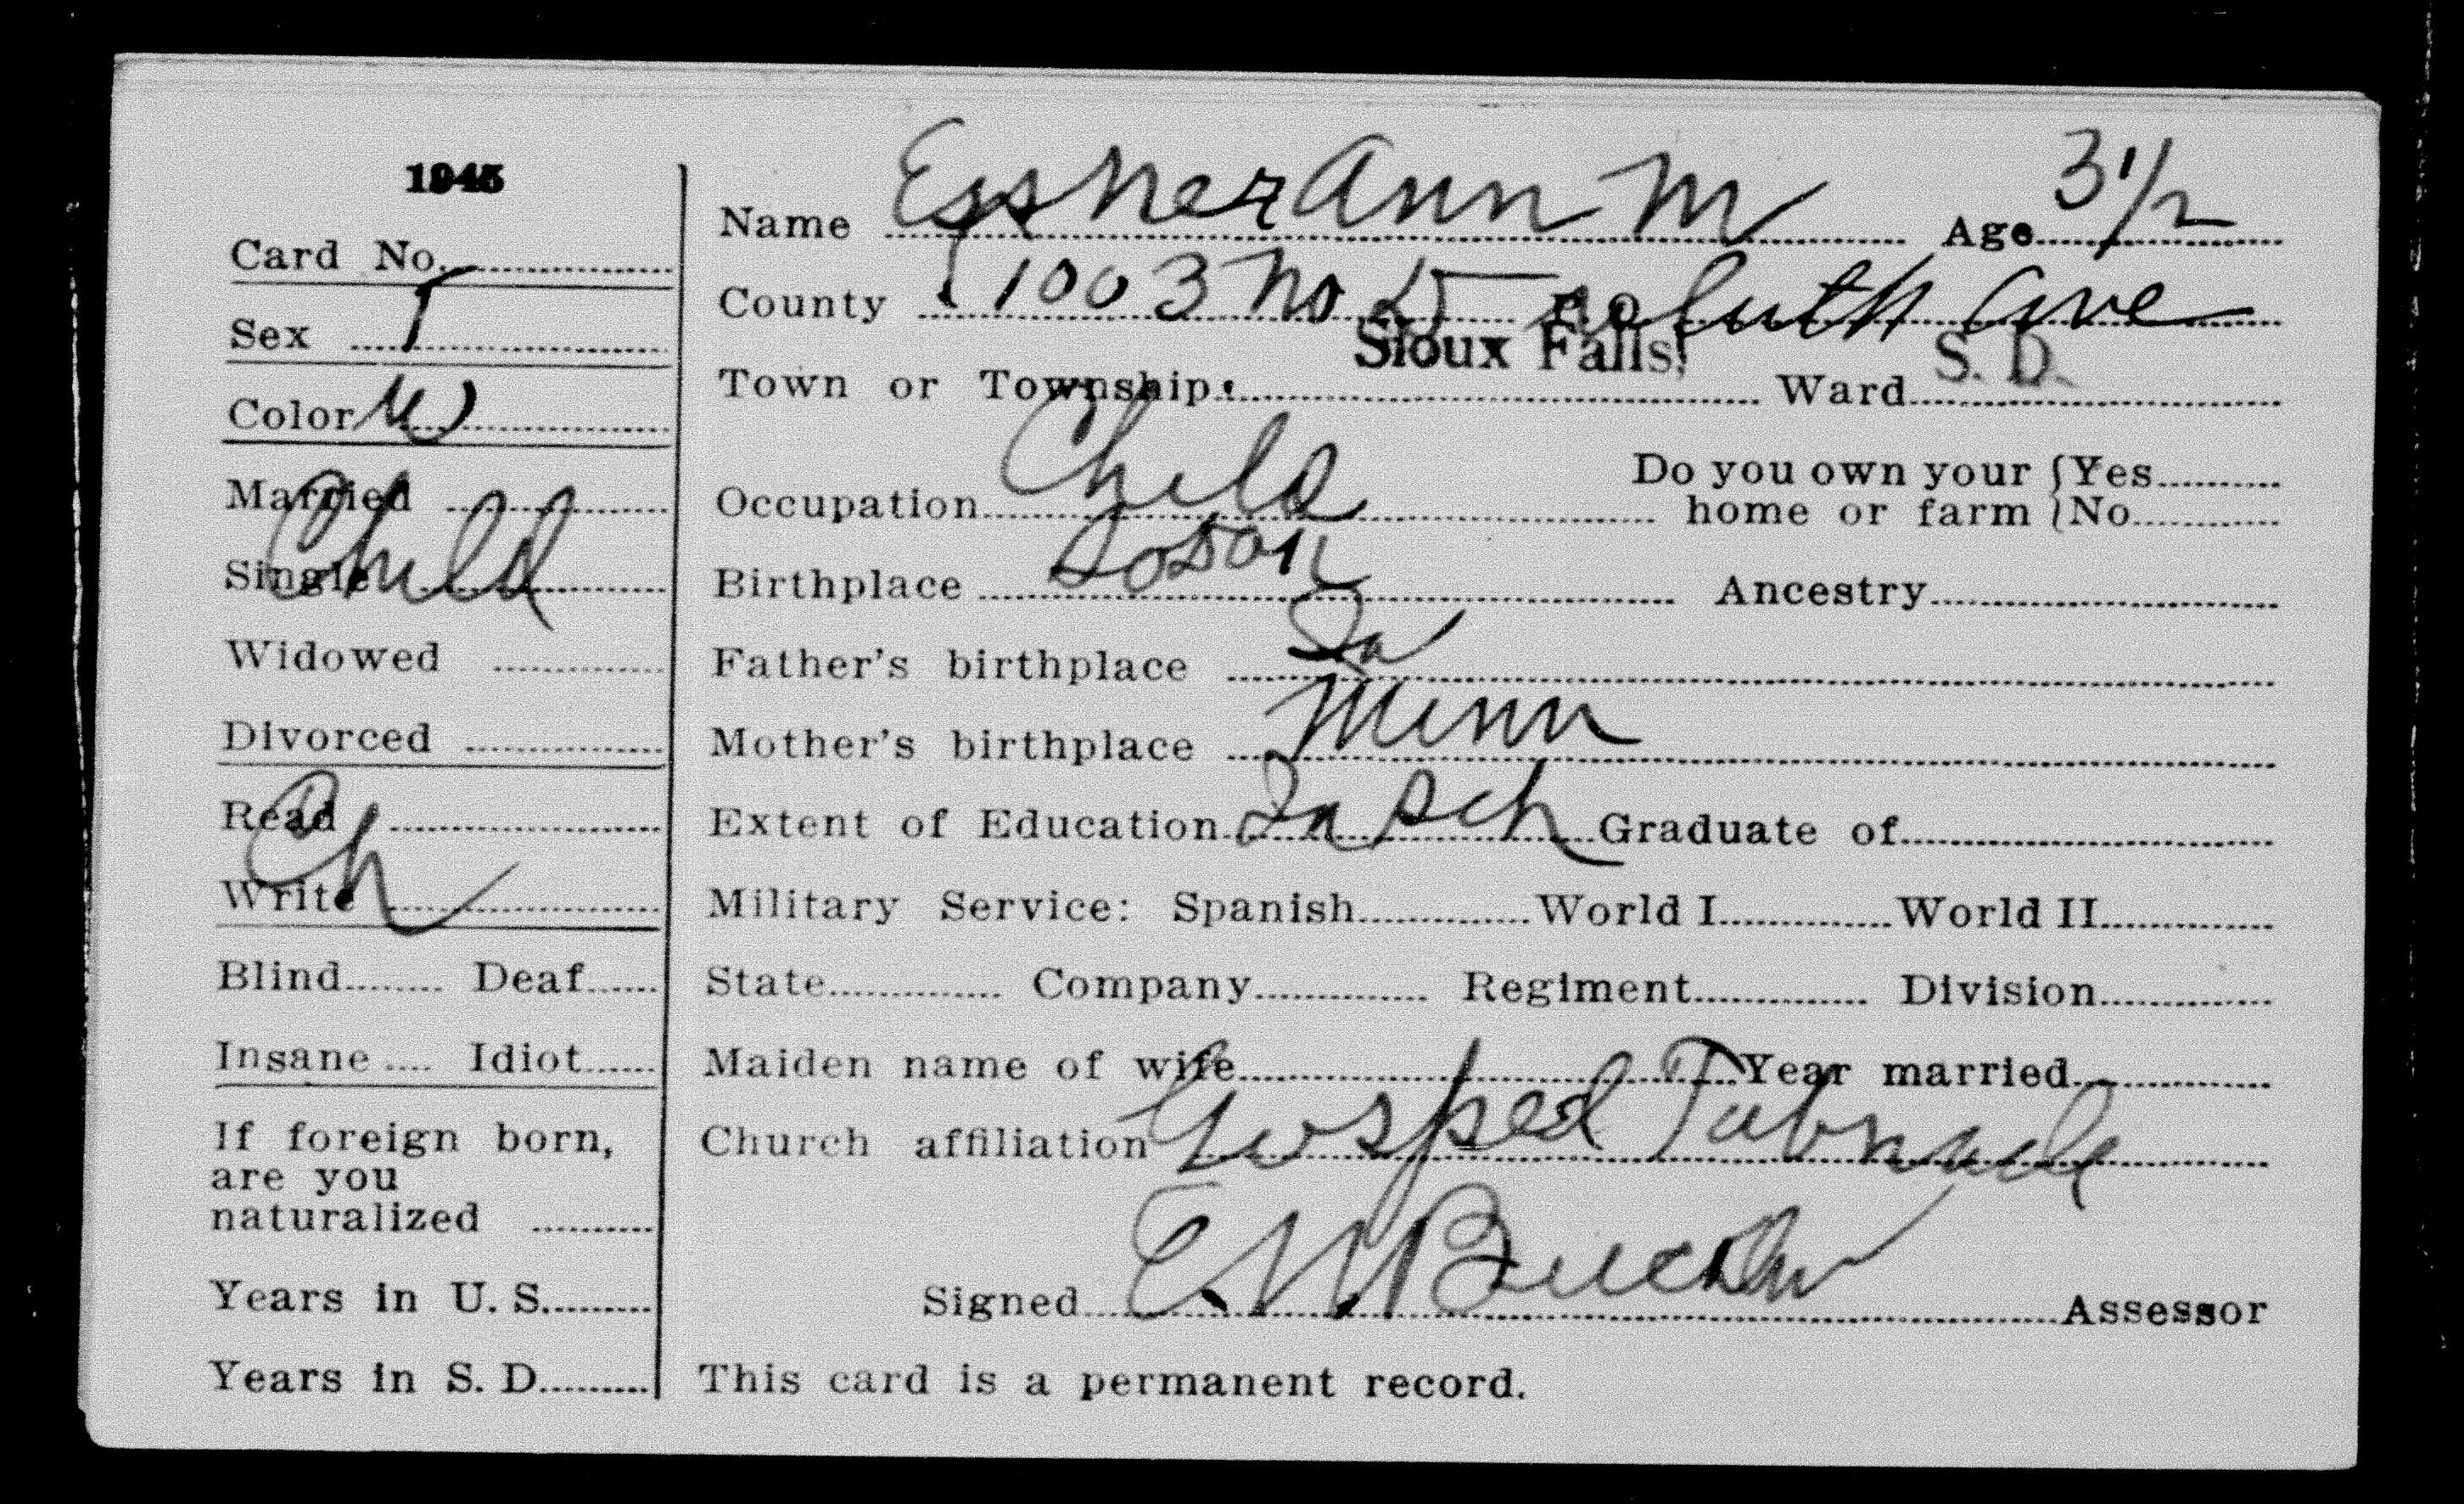 1945
Card No.
Sex F
Color W
Married
Child
Single
Widowed
Divorced
Read
Ch
Write
Blind Deaf
Insane Idiot
If foreign born,
are you
naturalized
Years in U. S.
Years in S. D.
Name Ann M Age 3 1/2
County 1003 No Duluth Ave P. O.
Sioux Falls, S. D.
Town or Township Ward
Occupation Child Do you own your Yes
home or farm No
Birthplace So Dak Ancestry
Father's birthplace Ia
Mother's birthplace Minn
Extent of Education Graduate of
Military Service: Spanish World I World II
State Company Regiment Division
Maiden name of wife Year married
Church affiliation Gospel Tabnacle
Signed E M Assessor
This card is a permanent record.